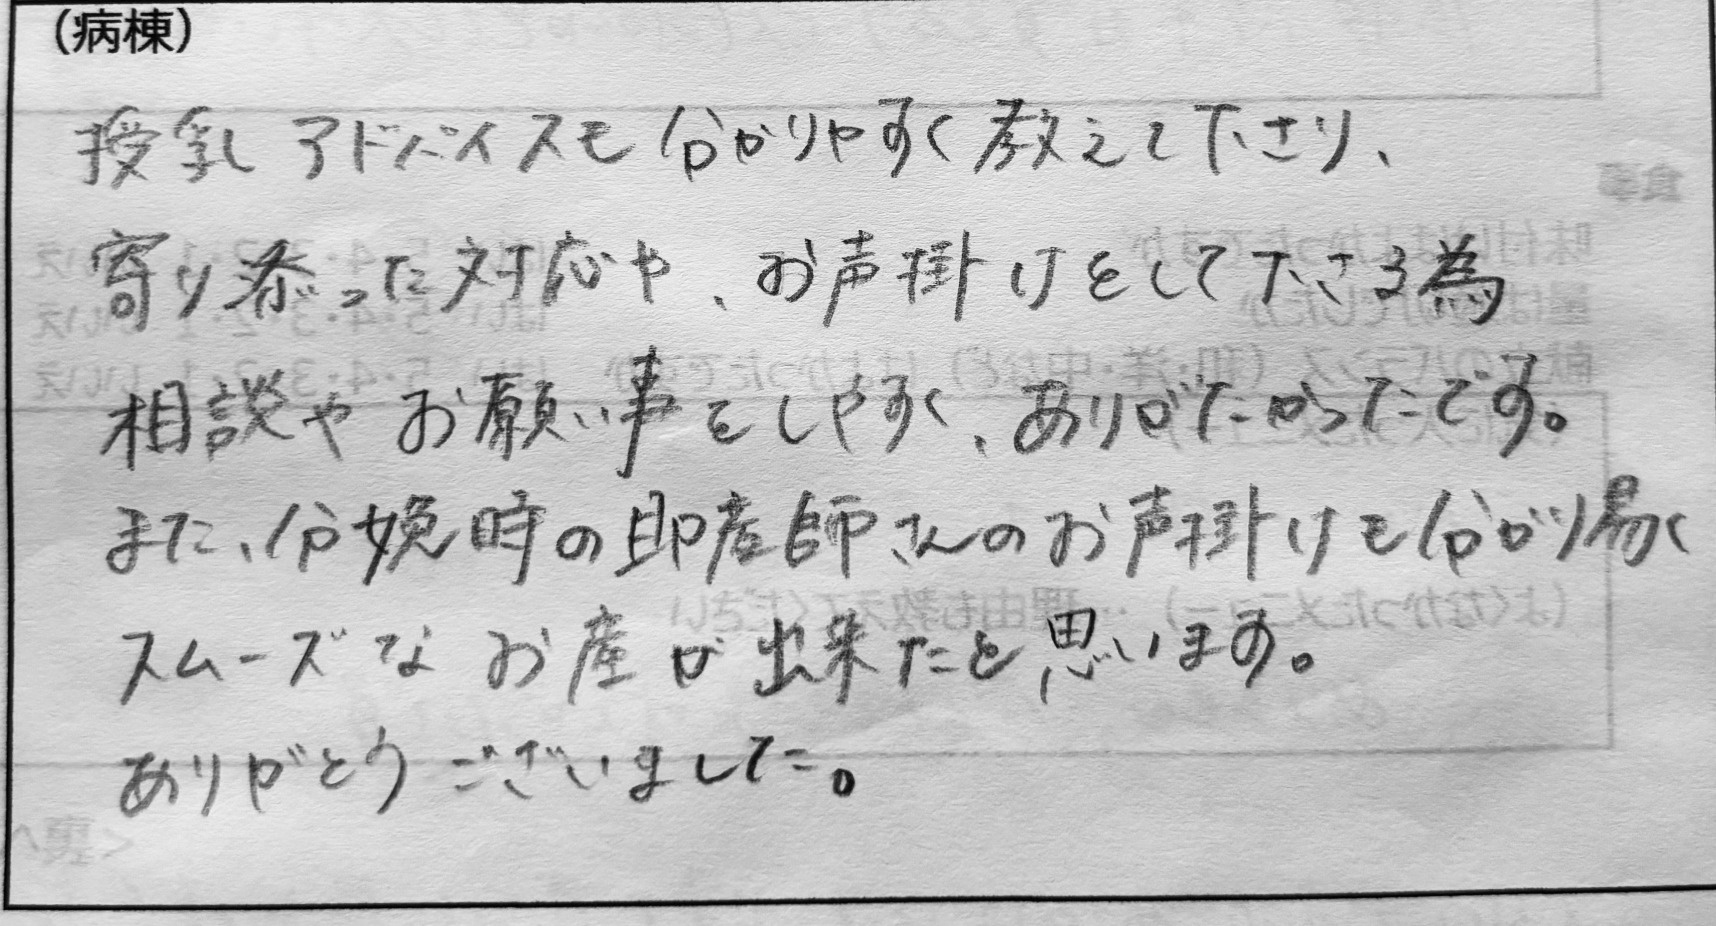 （病棟）
授乳アドバイスも分かりやすく教えて下さり、
寄り添った対応や、お声掛けをして下さる為
相談やお願い事をしやすく、ありがたかったです。
また、分娩時の助産師さんのお声掛けも分かり易く
スムーズなお産が出来たと思います。
ありがとうございました。